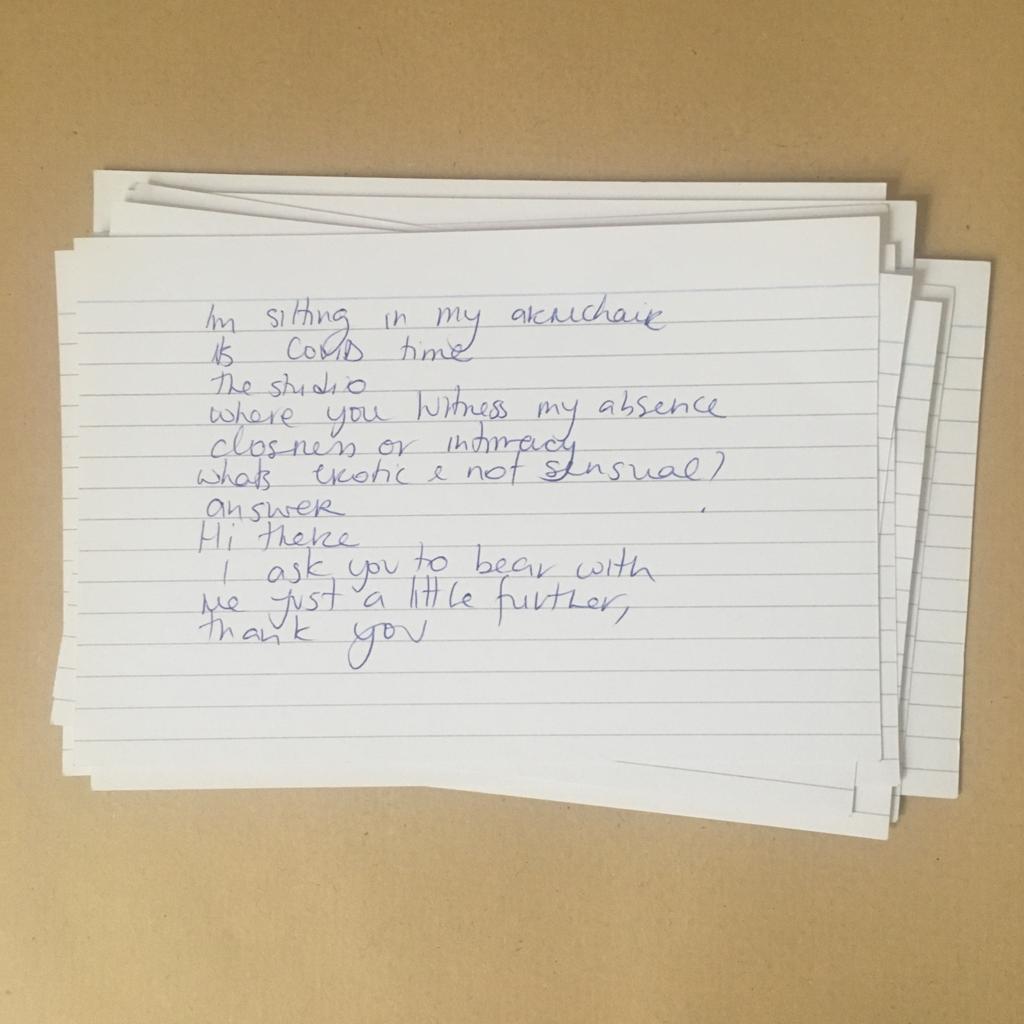 Im sitting in my armchair
its COVID time
the studio
where you witness my absence
closness or intimacy
whats erotic & not sensual?
answer
Hi there
I ask you to bear with
me just a little further,
thank you